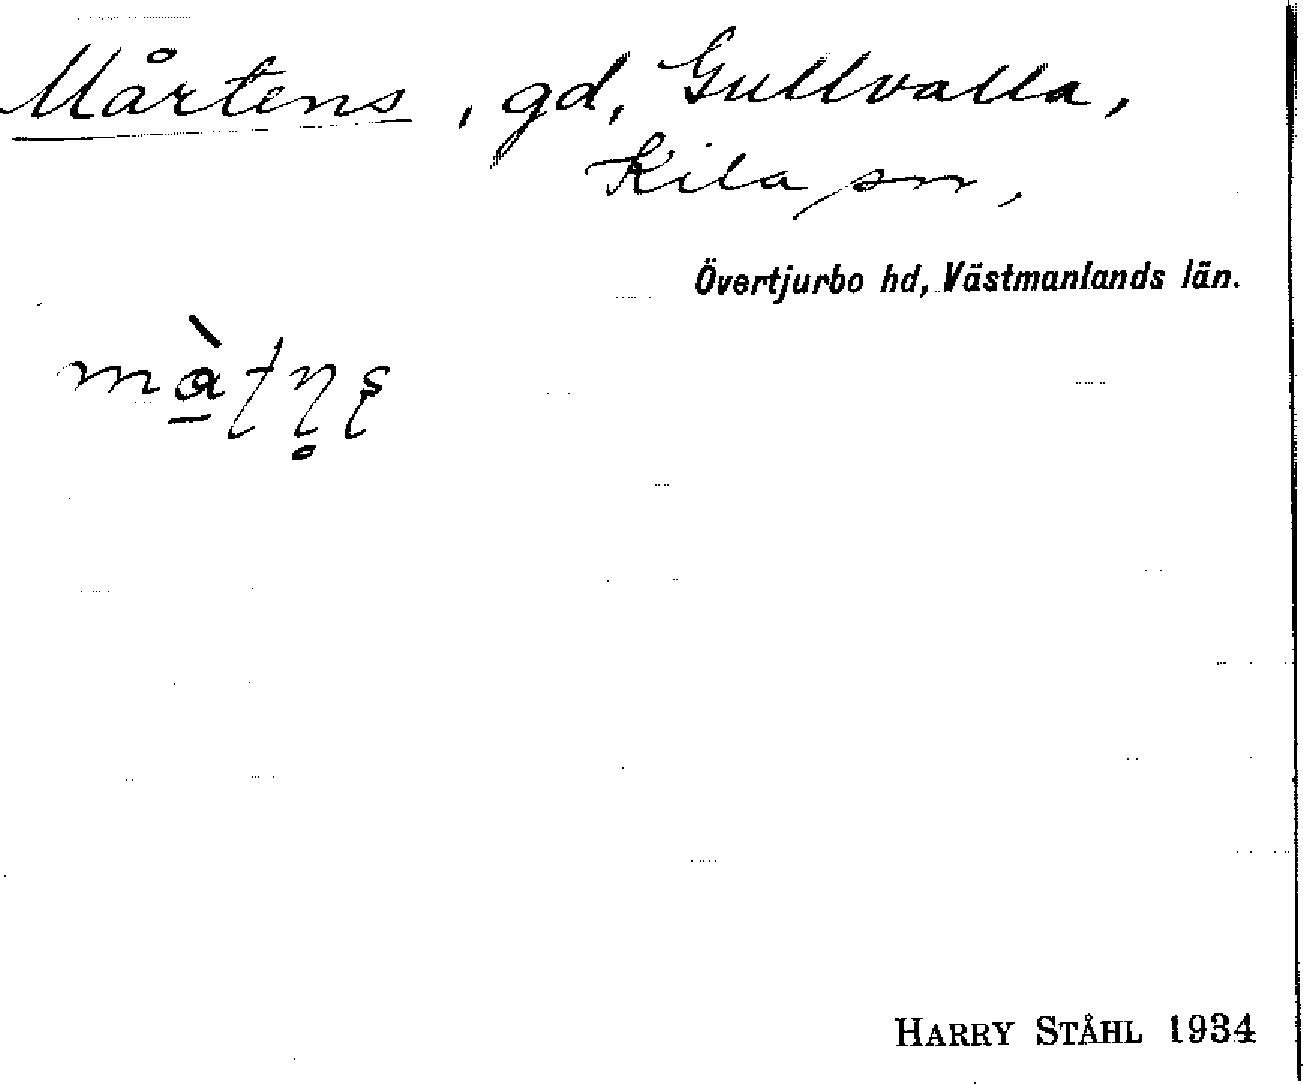 Mårtens, gd, Gullvalla,
Kila sn,
Övertjurbo hd, Västmanlands län.
mà̱ʈɳ̥ʂ
HARRY STÅHL 1934